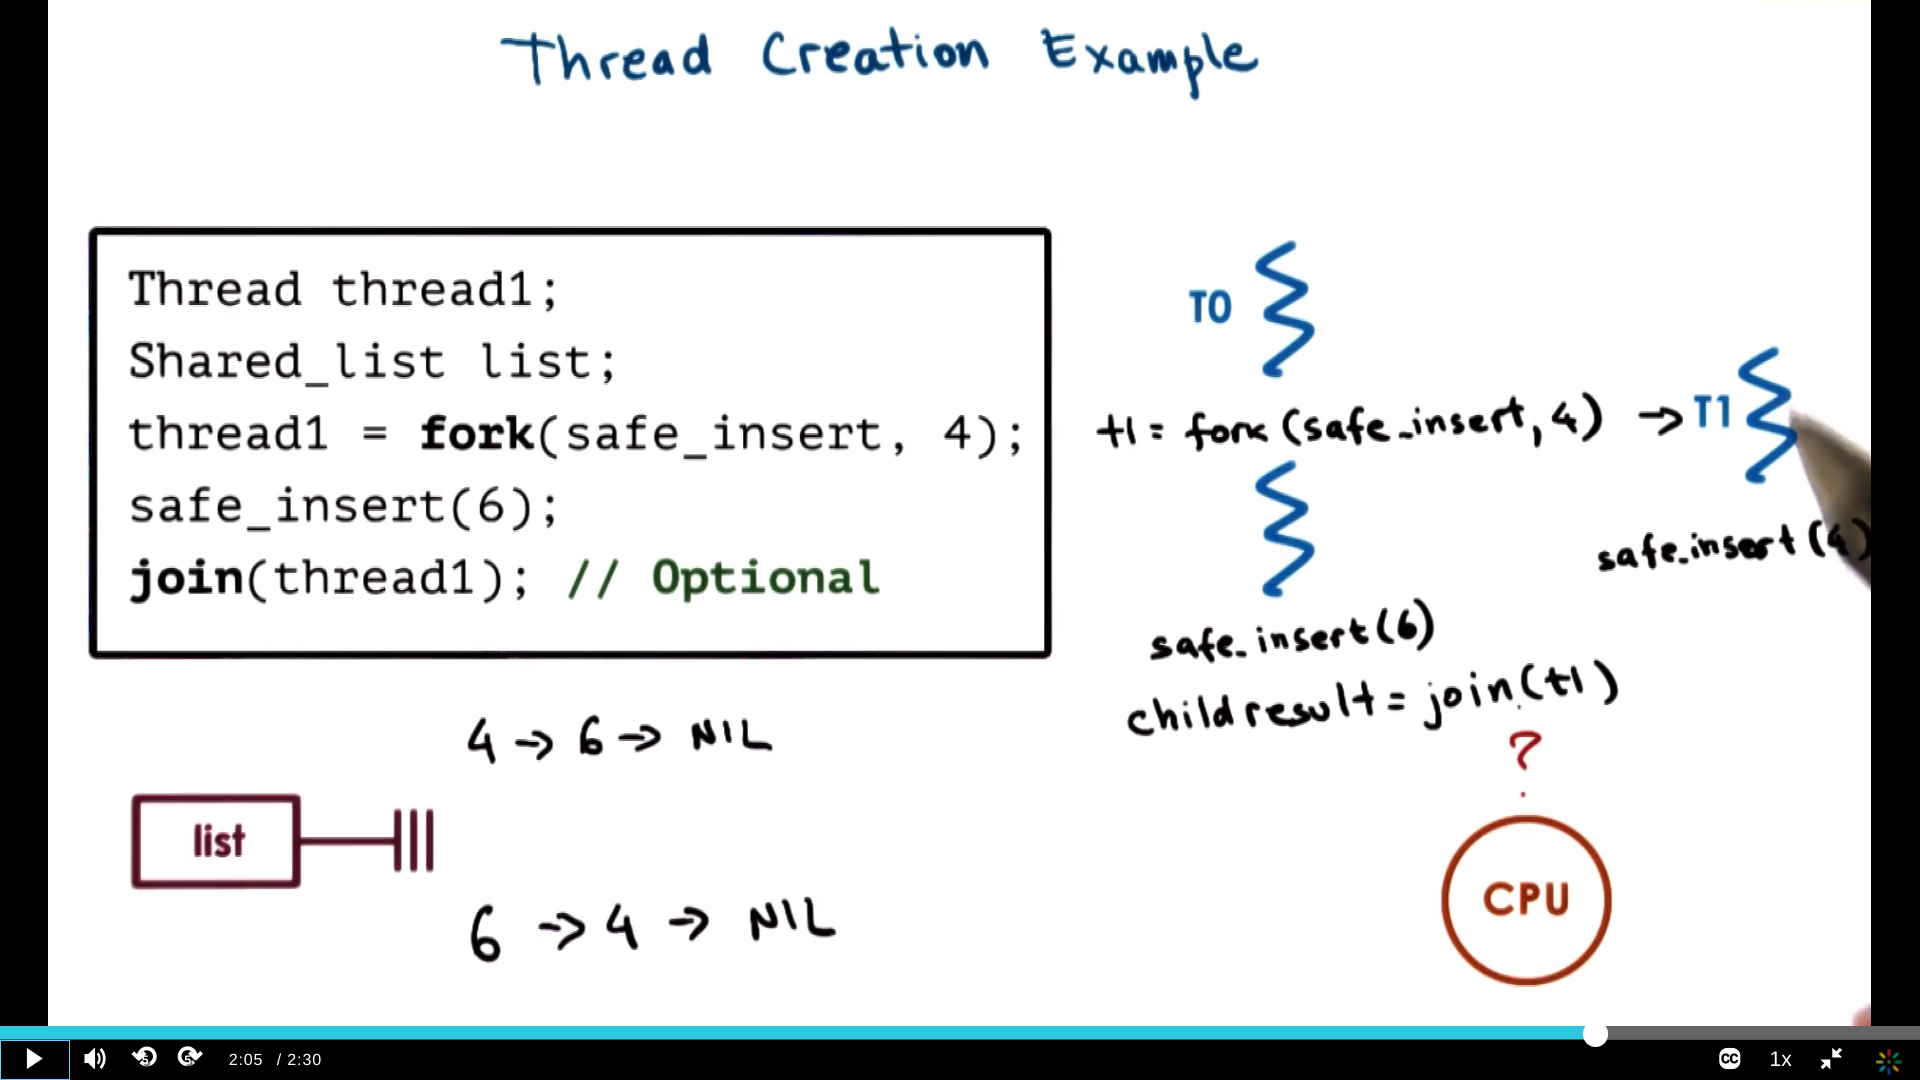 Thread Creation Example
Thread thread1;
Shared_list list;
thread1 = fork(safe_insert, 4);
safe_insert(6);
join(thread1); // Optional
T0
t1 = fork (safe_insert, 4) → T1
safe_insert (4)
safe_insert (6)
child result = join (t1)
?
CPU
4 → 6 → NIL
list
6 → 4 → NIL
2:05 / 2:30
CC
1x